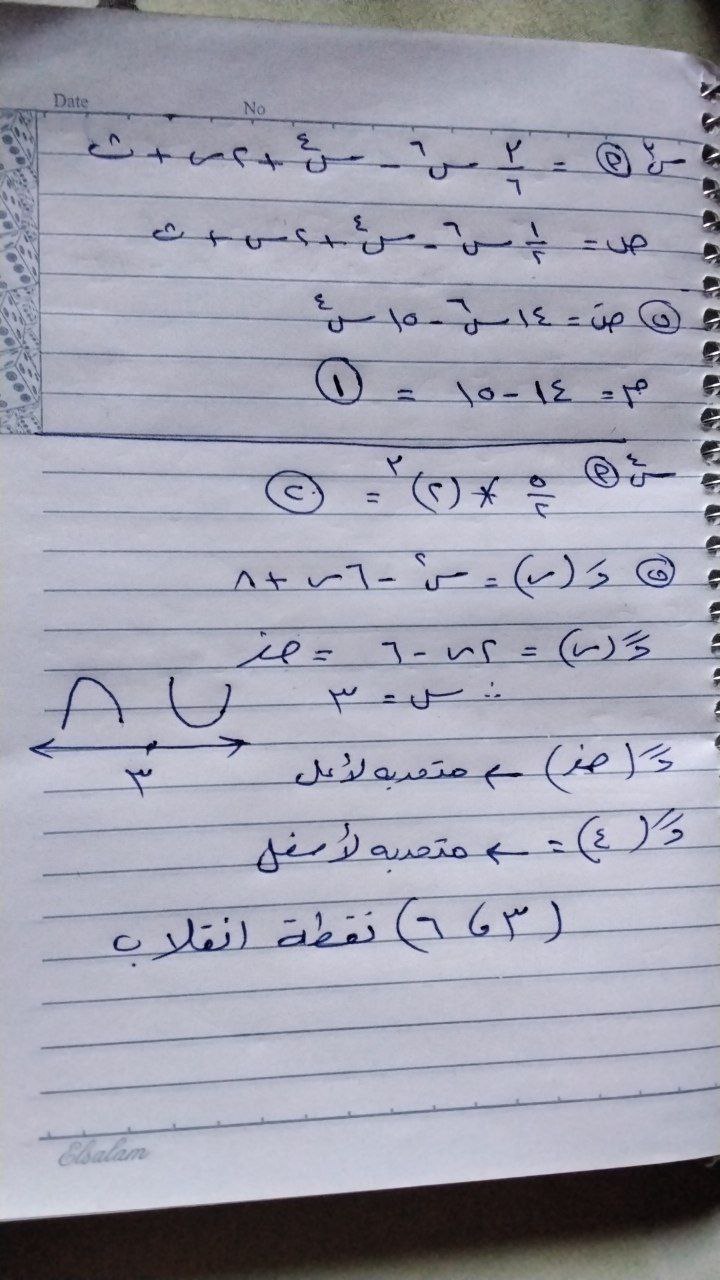 Date No
س٣ (P) = ٣/٦ س^٦ - س^٤ + ٢س + ث
ص = ١/٢ س^٦ - س^٤ + ٢س + ث
(ب) صَ = ١٤ س^٦ - ١٥ س^٤
م = ١٤ - ١٥ = (١)
س٤ (P) ٥/٢ * (٢)^٣ =
(ب) دَ(س) = س^٢ - ٦س + ٨
دً(س) = ٢س - ٦ = صفر
∴ س = ٣
٣
دً(صفر) ← متحدبه لأعلى
دً(٤) = ← متحدبه لأسفل
(٣ ، ٦) نقطة انقلاب
Elsalam